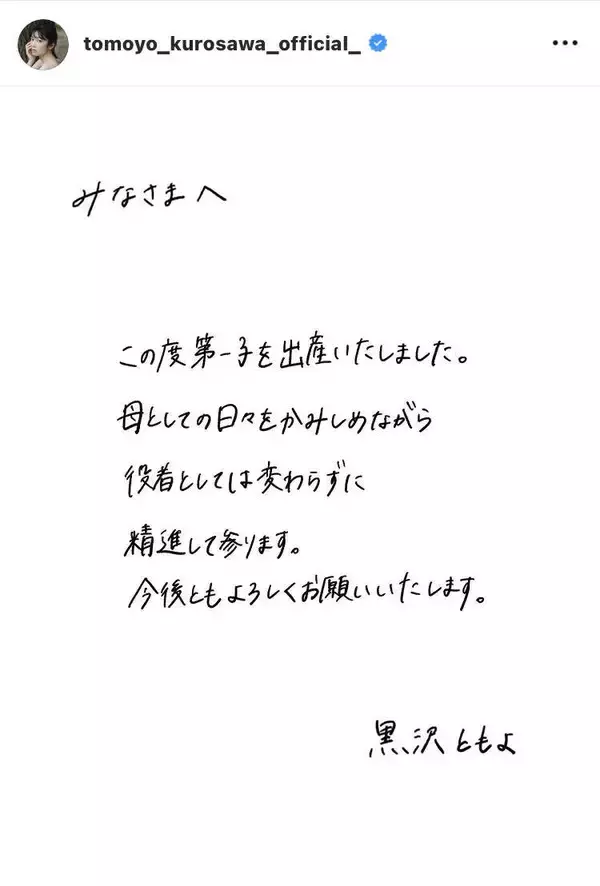 tomoyo_kurosawa_official_
みなさまへ
この度第一子を出産いたしました。
母としての日々をかみしめながら
役者としては変わらずに
精進して参ります。
今後ともよろしくお願いいたします。
黒沢ともよ